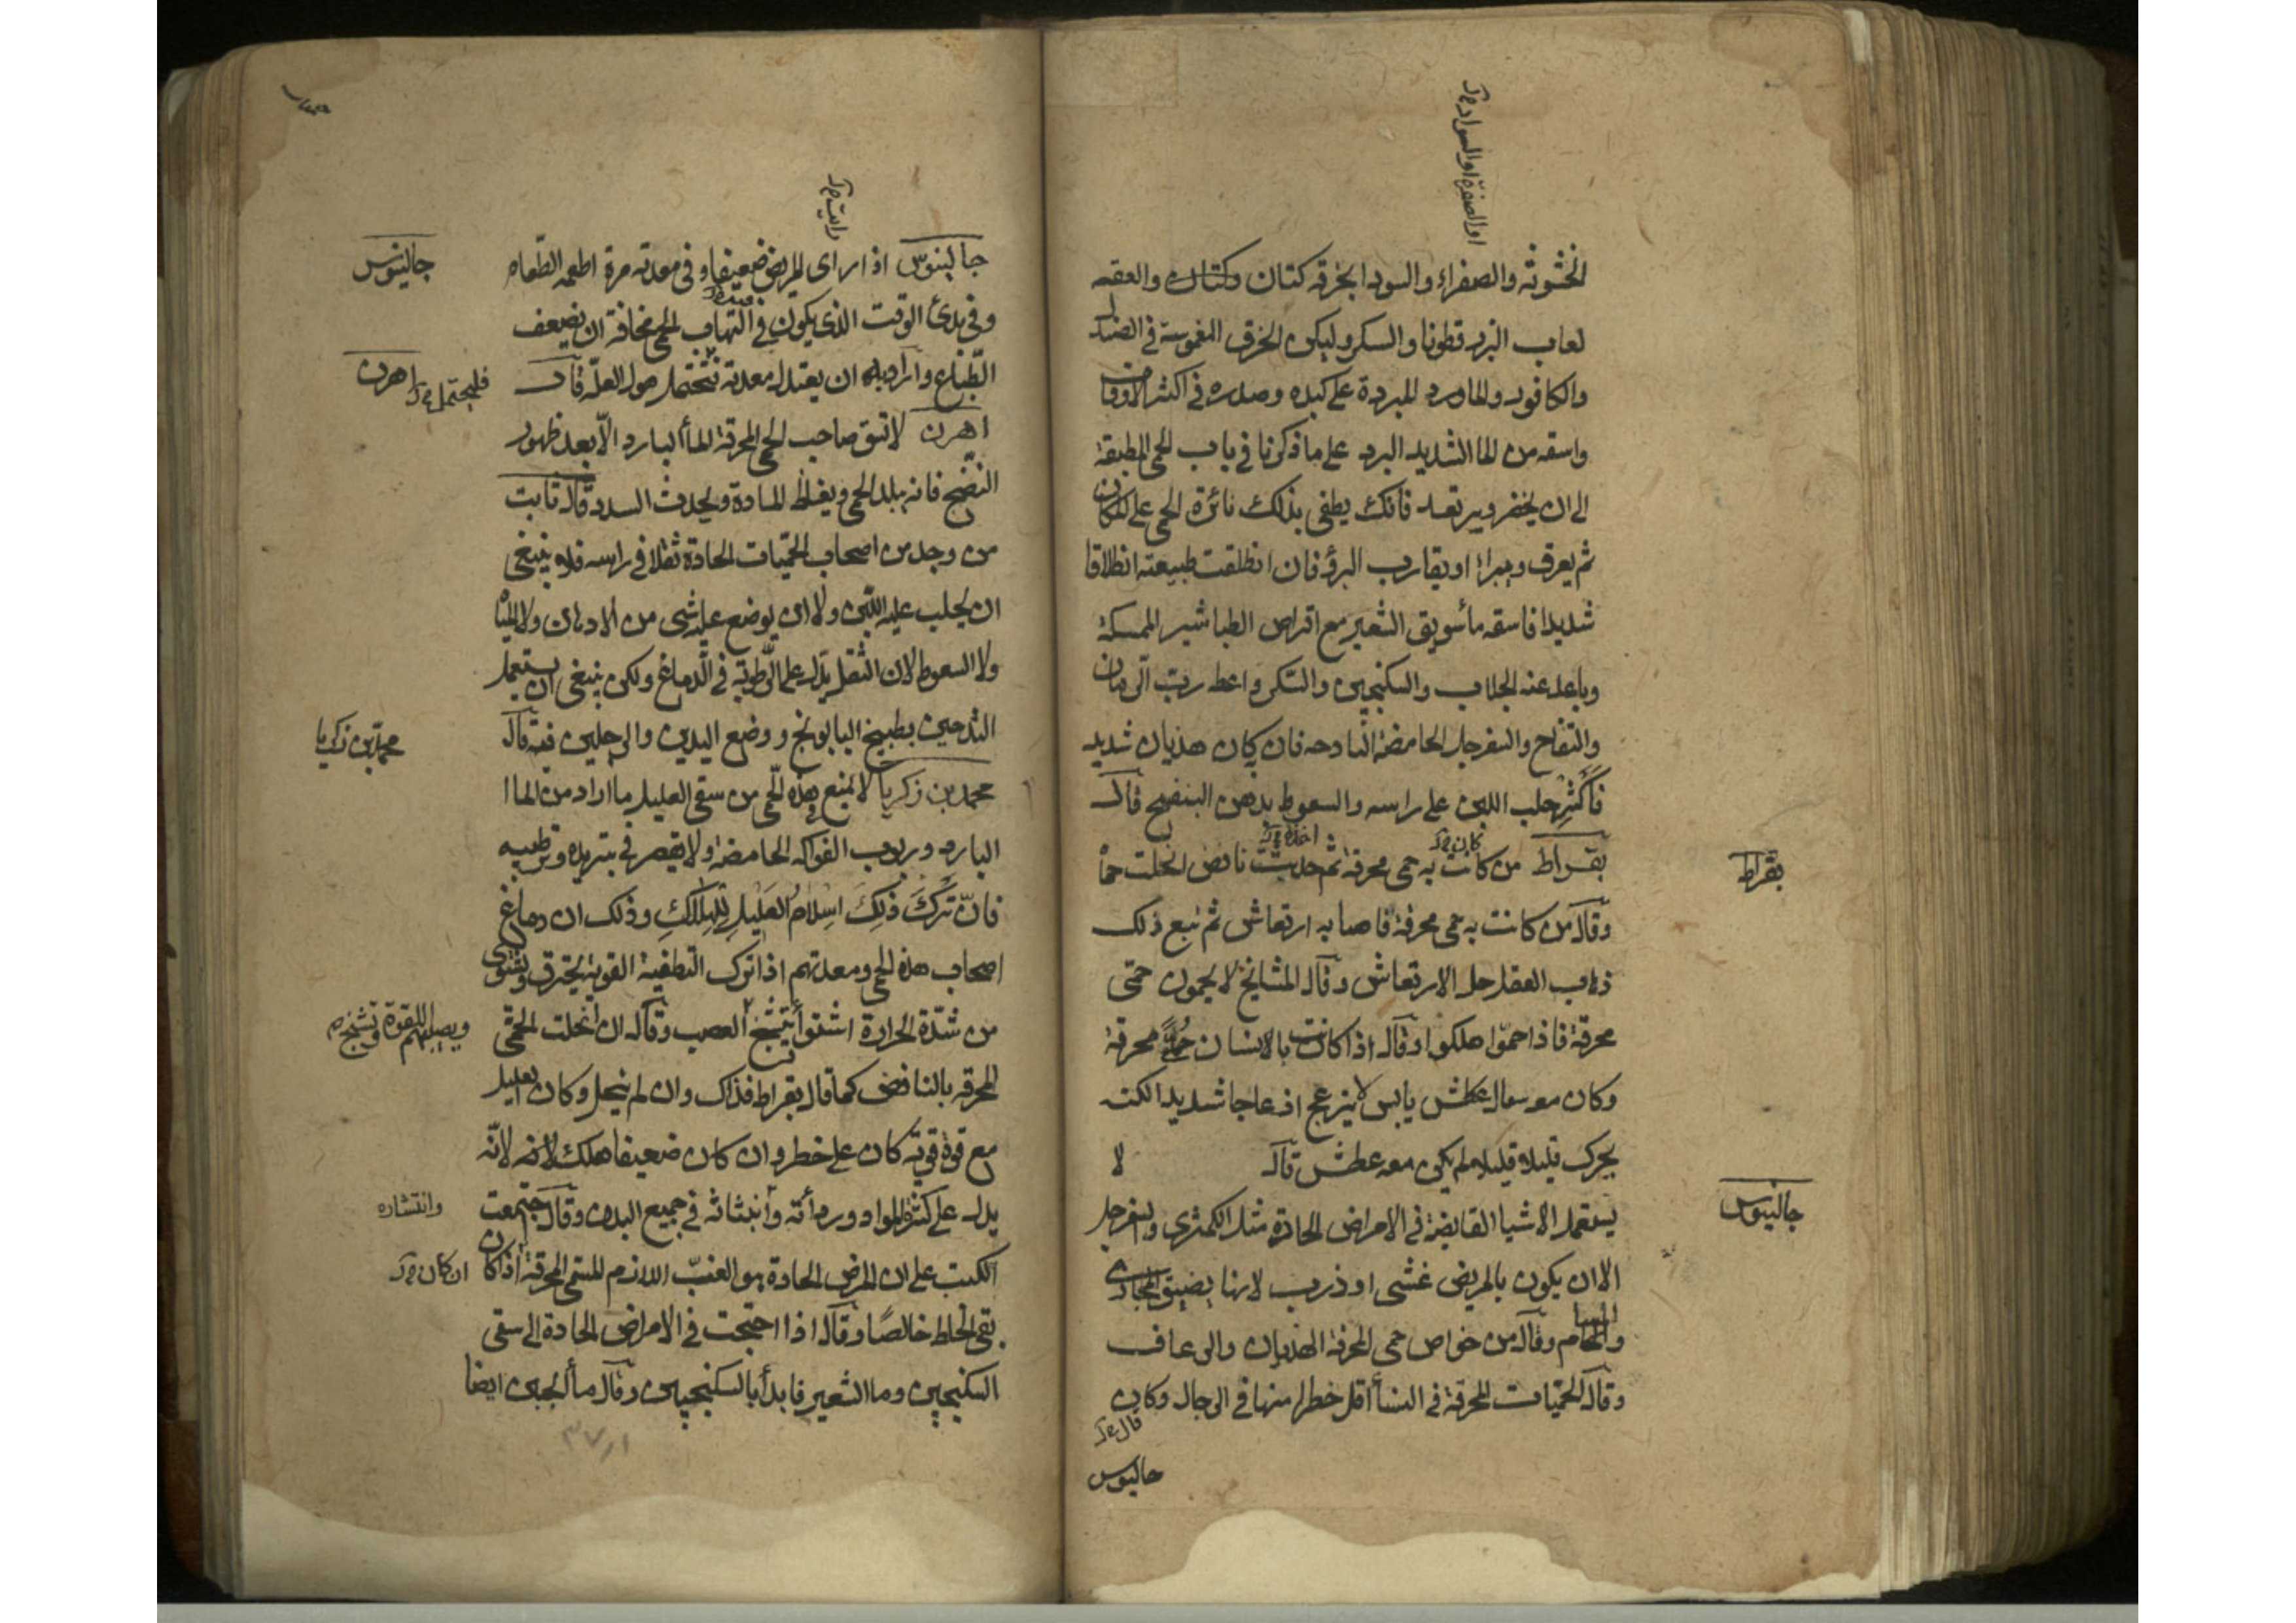 او الصفرة او السواد
الخشونة والصفراء والسودا بخرقة كتان وكتان والعقه
لعاب البزر قطونا والسكر وليكن الخرق المغموسة في الضماد
والكافور والماورد المبردة على كبده وصدره في اكثر الاوقات
واسقه من الما الشديد البرد على ما ذكرنا في باب الحمى المطبقة
الى ان يخضر ويرتعد فانك يطفى بذلك نائرة الحمى على المكان
ثم يعرق ويبرا او يقارب البرؤ فان انطلقت طبيعته انطلاقا
شديدا فاسقه مأ سويق الشعير مع اقراص الطباشير الممسكة
وباعد عنه الجلاب والسكنجبين والسكر واعط رب الرمان
والتفاح والسفرجل الحامضة فان كان هذيان شديد
فأكثر حلب اللبن على راسه والسعوط بدهن البنفسج قال
بقراط من كانت به حمى محرقة ثم حدثت نافض انحلت حماه
كان
اخذه
بقراط
وقال من كانت به حمى محرقة فاصابه ارتعاش ثم تبع ذلك
ذهاب العقل حل الارتعاش وقال المشايخ لا يحمون حمى
محرقة فاذا حموا هلكوا وقال اذا كانت بالانسان حمى محرقة
وكان معه سعال عطش يابس لا ينزعج اذعاجا شديدا لكنه
يحرك قليلا قليلا لم يكن معه عطش قال لا
جالينوس
يستعمل الاشيا القابضة في الامراض الحادة مثل الكمثرى والسفرجل
الا ان يكون بالمريض غشى او ذرب لانها يضيق المجارى
والمسام وقال من خواص حمى المحرقة الهذيان والرعاف
وقال الحميات المحرقة في النسأ اقل خطرا منها في الرجال وكان
قال
جالينوس
رايت
جالينوس اذا راى المريض ضعيفا وفي معدته مرة اطعمه الطعام
جالينوس
وفي بدئ الوقت الذى يكون في التهاب الحمى مخافة ان يضعف
الطباع واراد به ان يعتدل معدته فتحتمل طول العلة قال
فليحتمل
اهرن
اهرن لا تسق صاحب الحمى المحرقة المأ البارد الا بعد ظهور
النضج فانه يبلد الحمى ويغلظ المادة ويحدث السدد قال ثابت
من وجد من اصحاب الحميات الحادة ثقلا في راسه فلا ينبغى
ان يحلب عليه اللبن ولا ان يوضع عليه شى من الادهان ولا المياه
ولا السعوط لان الثقل يدل على الرطوبة في الدماغ ولكن ينبغى ان يستعمل
التدحين بطبيخ البابونج ووضع اليدين والرجلين فيه قال
محمد بن زكريا
محمد بن زكريا لا تمنع في هذه الحمى من سقى العليل ما اراد من الما
البارد وربوب الفواكه الحامضة ولا تقصر في تبريده وترطيبه
فان ترك ذلك اسلام العليل للهلاك وذلك ان دماغ
اصحاب هذه الحمى ومعدتهم اذا ترك التطفية القوية يحترق ويشوى
من شدة الحرارة اشتوا يتشنج العصب وقال ان انحلت الحمى
ويصيبهم اللقوة وتشنج
المحرقة بالنافض كما قال بقراط فذاك وان لم ينحل وكان العليل
مع قوة قوية كان على خطر وان كان ضعيفا هلك لا محه لانه
يدل على كثرة المواد ورداته وانبثاثه في جميع البدن وقال اجتمعت
وانتشاره
الكتب على ان المرض الحادة هو الغب اللازم المسمى المحرقة اذا كان
ان كان
بقى الخلط خالصا وقال اذا احتجت في الامراض الحادة الى سقى
السكنجبين وما الشعير فابدأ بالسكنجبين وقال مأ الجبن ايضا